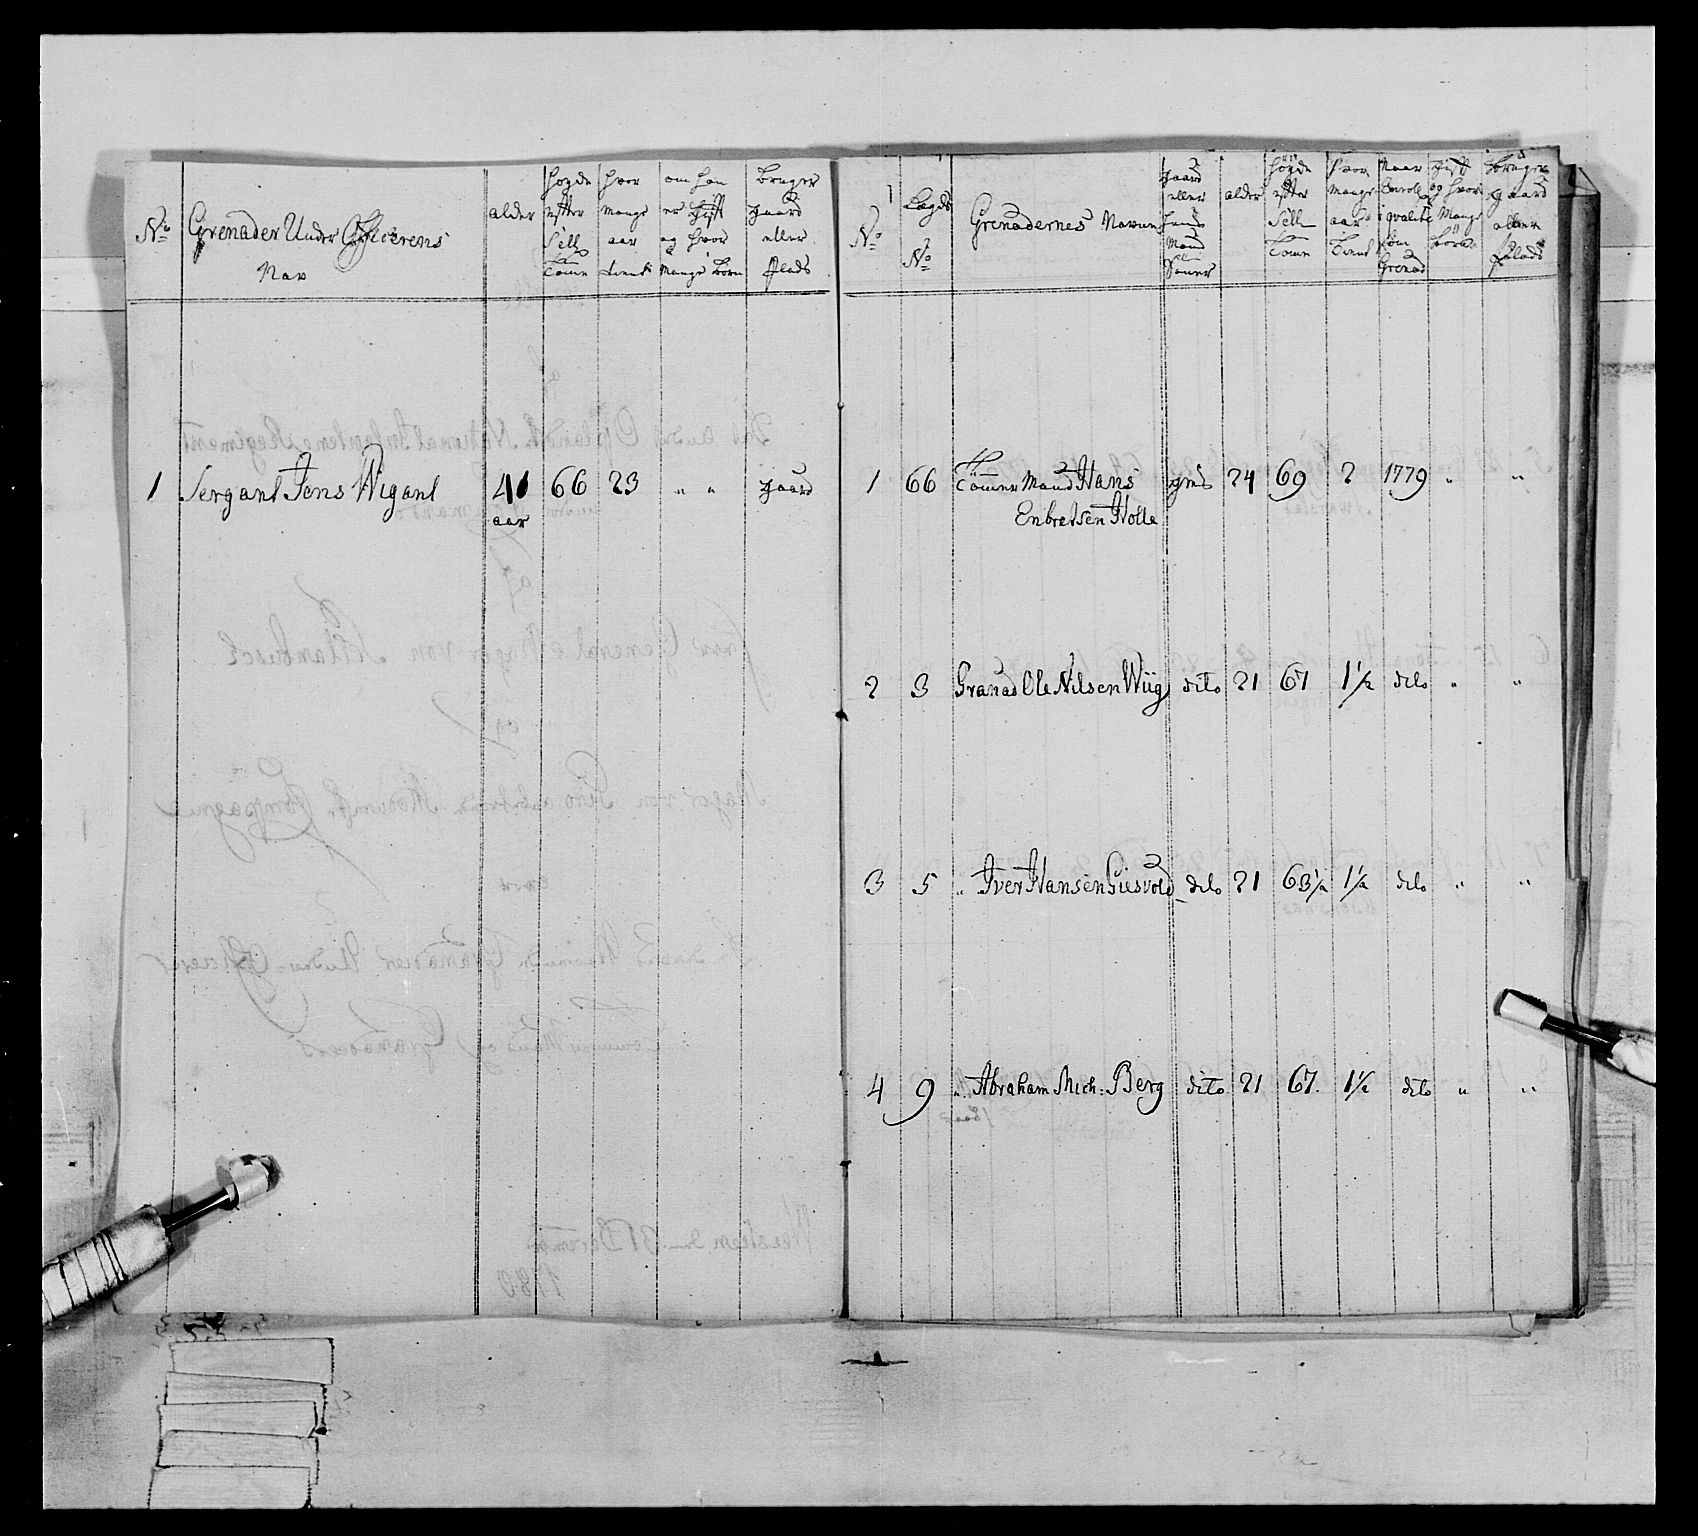 No
Grenader Under Officerens
Nav
alder
høyde
efter
Sell
Tomme
hvor
mange
aar
tient
om han
er gift
og hvor
mange børn
bruger
gaard
eller
plads
1 Sergant Jens Wigant 41 66 23 " " gaard
aar
No
Lægds
No
Grenadernes Navne
gaard
eller
huus
Mand
Sønner
alder
høyde
efter
Sell
Tomme
hvor
mange
aar
tient
Naar
Enroll
i qvalite
som
Grenad
gift
og hvor
mange
børn
bruger
gaard
eller
plads
1 66 Tømmer Mand Hans gmd 24 69 2 1779 " "
Enbretsen Holla
2 3 Granad Ole Nilsen Wiig dito 21 67 1½ dito " "
3 5 " Iver Hansen Giesvold dito 21 63½ 1½ dito " "
4 9 " Abraham Mich: Berg dito 21 67 1½ dito " "